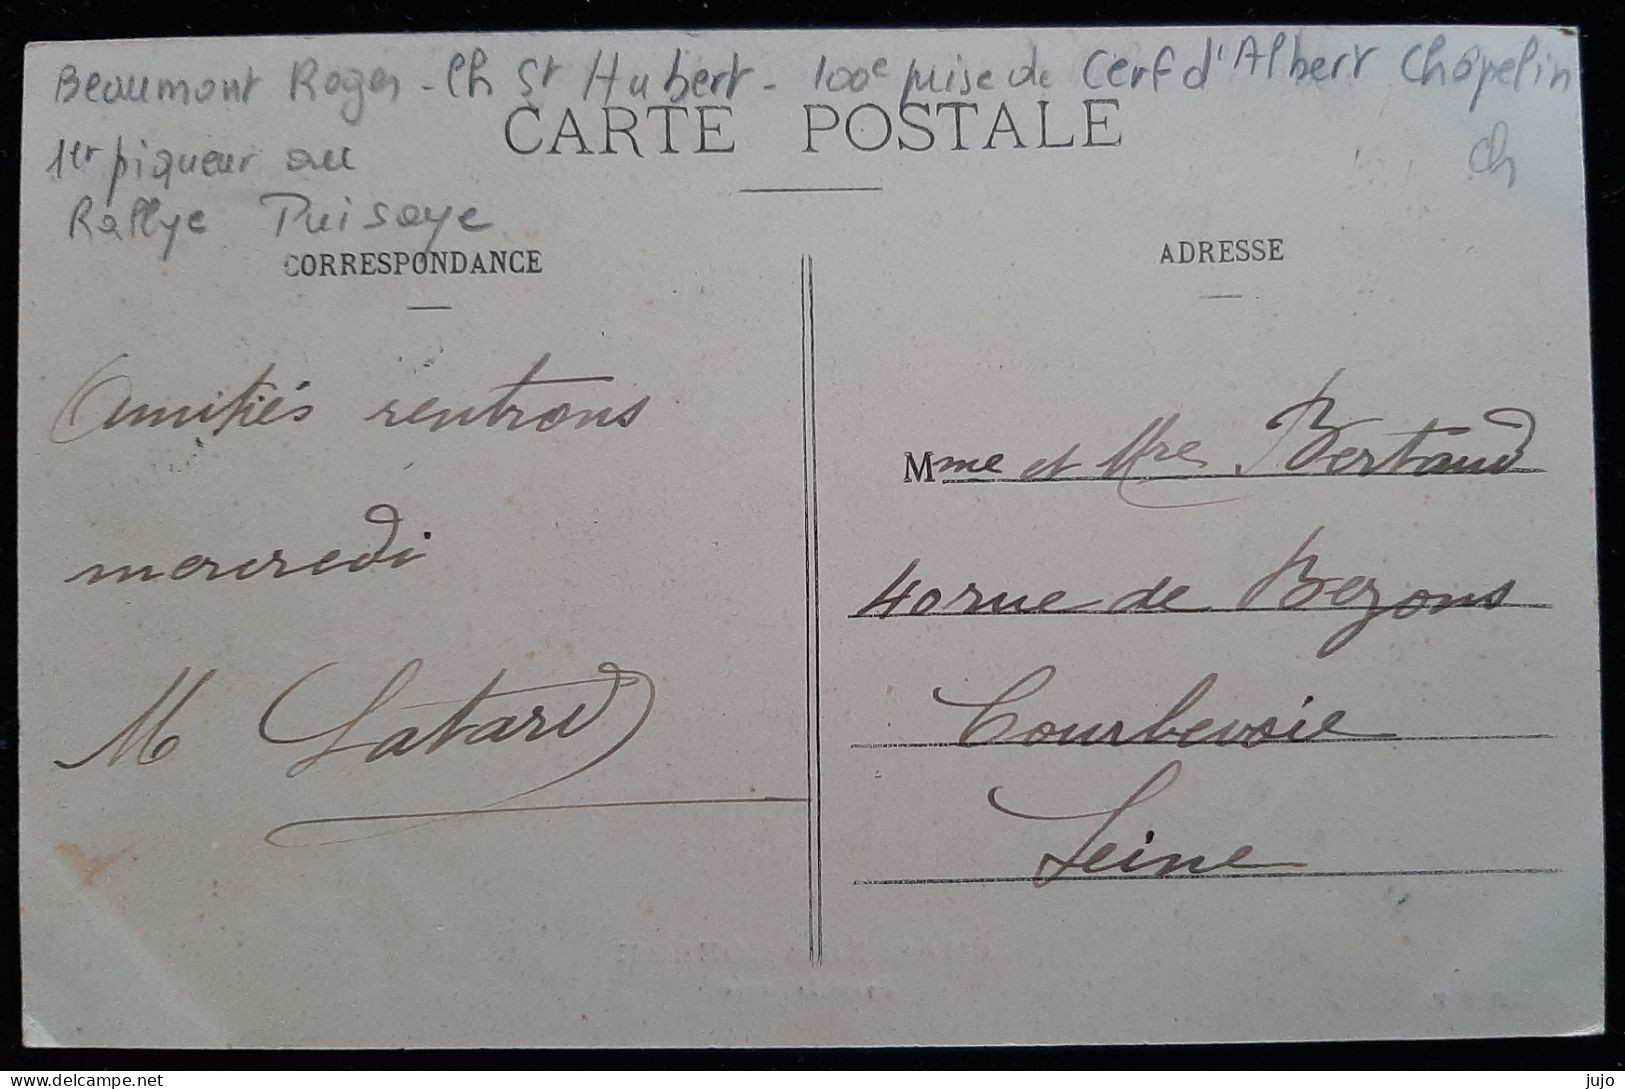 Beaumont Roger - Ch St Hubert - 100e prise de Cerf d'Albert Chapelin
CARTE POSTALE
1er piqueur au
Ch
Rallye Puisaye
CORRESPONDANCE
ADRESSE
Amitiés rentrons
mercredi
M Latard
Mme et Mre Bertaud
40 rue de Bezons
Courbevoie
Seine
delcampe.net
jujo